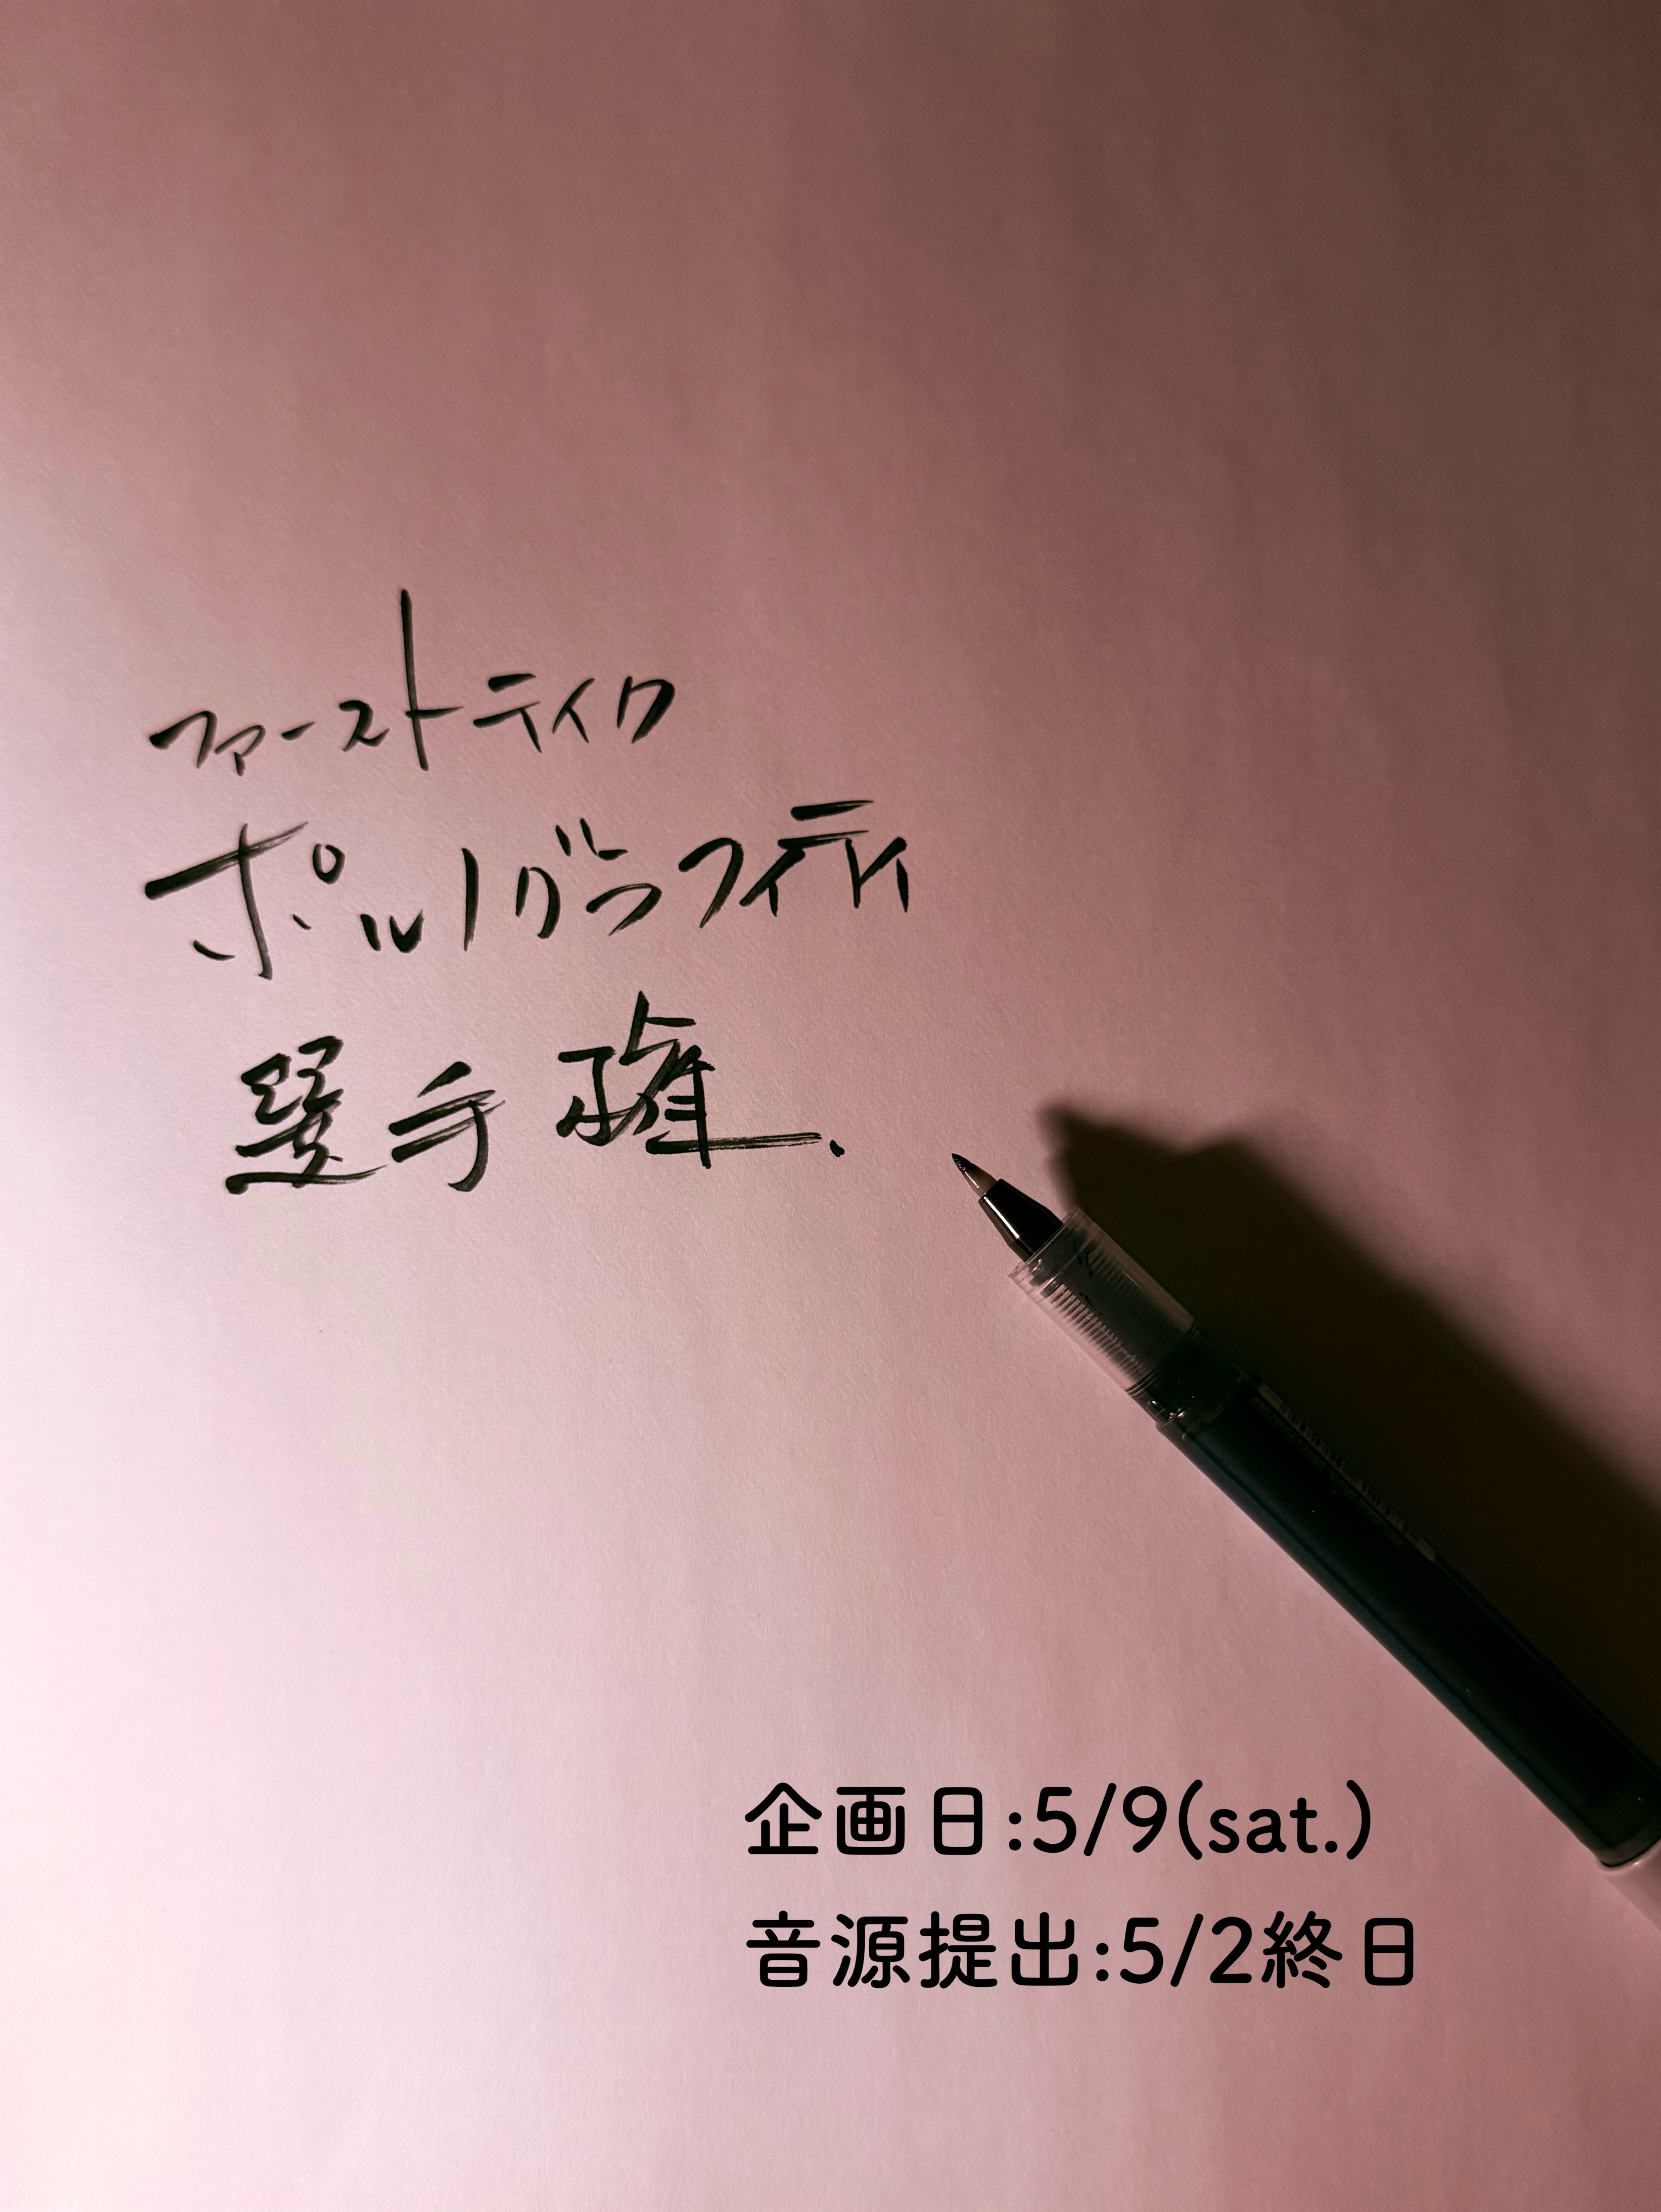 ファーストテイク
ポルノグラフィティ
選手権.
企画日:5/9(sat.)
音源提出:5/2終日